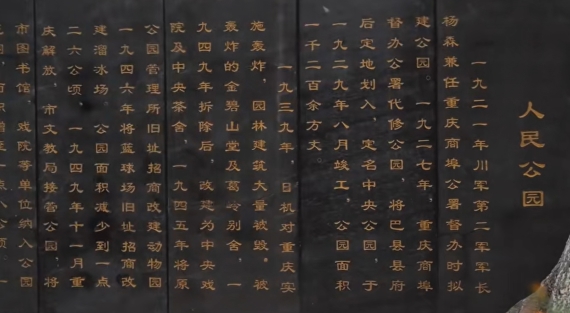 人民公园
一九二一年川军第二军军长
杨森兼任重庆商埠公署督办时拟
建公园。一九二七年，重庆商埠
督办公署代修公园，将巴县县府
后定地划入，定名中央公园，于
一九二九年八月竣工，公园面积
一千二百余方丈。
一九三九年，日机对重庆实
施轰炸，园林建筑大量被毁。被
轰炸的金碧山堂及葛岭别舍，一
九四九年拆除后，改建为中央戏
院及中央茶舍，一九四五年将原
公园管理所旧址招商改建动物园
一九四六年将蓝球场旧址招商改
建溜冰场。公园面积减少到一点
二六公顷，一九四九年十一月重
庆解放，市文教局接管公园，将
市图书馆、戏院等单位纳入公园